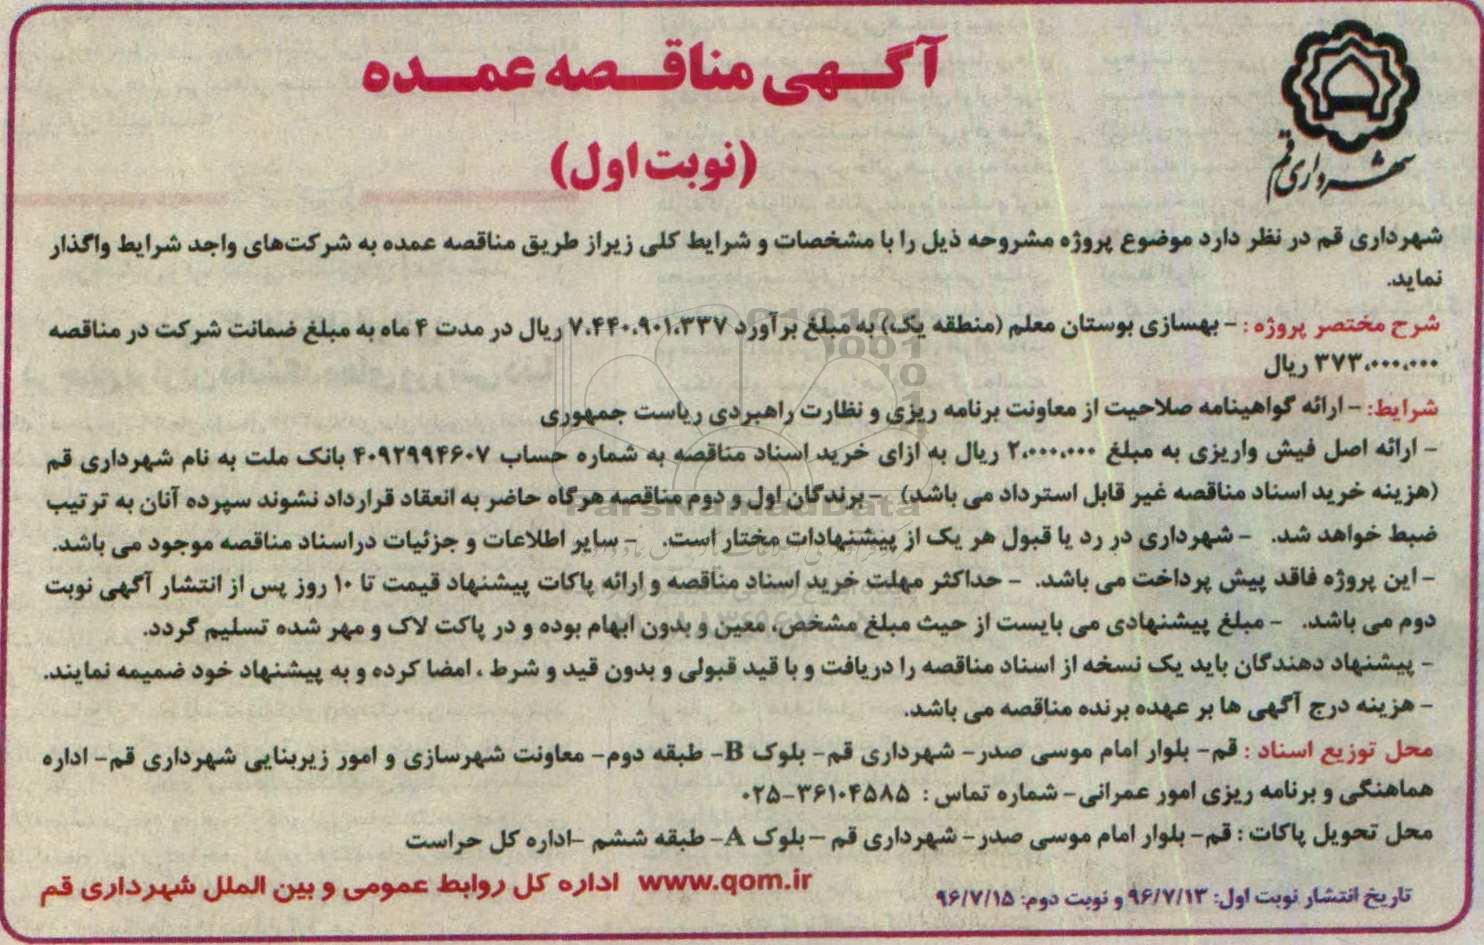 آگهی مناقصه عمده
(نوبت اول)
شهرداری قم
شهرداری قم در نظر دارد موضوع پروژه مشروحه ذیل را با مشخصات و شرایط کلی زیراز طریق مناقصه عمده به شرکت‌های واجد شرایط واگذار
نماید.
شرح مختصر پروژه : - بهسازی بوستان معلم (منطقه یک) به مبلغ برآورد ۷،۴۴۰،۹۰۱،۳۳۷ ریال در مدت ۴ ماه به مبلغ ضمانت شرکت در مناقصه
۳۷۳،۰۰۰،۰۰۰ ریال
شرایط: - ارائه گواهینامه صلاحیت از معاونت برنامه ریزی و نظارت راهبردی ریاست جمهوری
- ارائه اصل فیش واریزی به مبلغ ۲،۰۰۰،۰۰۰ ریال به ازای خرید اسناد مناقصه به شماره حساب ۴۰۹۲۹۹۴۶۰۷ بانک ملت به نام شهرداری قم
(هزینه خرید اسناد مناقصه غیر قابل استرداد می باشد) - برندگان اول و دوم مناقصه هرگاه حاضر به انعقاد قرارداد نشوند سپرده آنان به ترتیب
ضبط خواهد شد. - شهرداری در رد یا قبول هر یک از پیشنهادات مختار است. - سایر اطلاعات و جزئیات دراسناد مناقصه موجود می باشد.
- این پروژه فاقد پیش پرداخت می باشد. - حداکثر مهلت خرید اسناد مناقصه و ارائه پاکات پیشنهاد قیمت تا ۱۰ روز پس از انتشار آگهی نوبت
دوم می باشد. - مبلغ پیشنهادی می بایست از حیث مبلغ مشخص، معین و بدون ابهام بوده و در پاکت لاک و مهر شده تسلیم گردد.
- پیشنهاد دهندگان باید یک نسخه از اسناد مناقصه را دریافت و با قید قبولی و بدون قید و شرط ، امضا کرده و به پیشنهاد خود ضمیمه نمایند.
- هزینه درج آگهی ها بر عهده برنده مناقصه می باشد.
محل توزیع اسناد : قم- بلوار امام موسی صدر- شهرداری قم- بلوک B- طبقه دوم- معاونت شهرسازی و امور زیربنایی شهرداری قم- اداره
هماهنگی و برنامه ریزی امور عمرانی- شماره تماس : ۳۶۱۰۴۵۸۵-۰۲۵
محل تحویل پاکات : قم- بلوار امام موسی صدر- شهرداری قم –بلوک A- طبقه ششم -اداره کل حراست
تاریخ انتشار نوبت اول: ۹۶/۷/۱۳ و نوبت دوم: ۹۶/۷/۱۵
www.qom.ir اداره کل روابط عمومی و بین الملل شهرداری قم
ParsNamadData